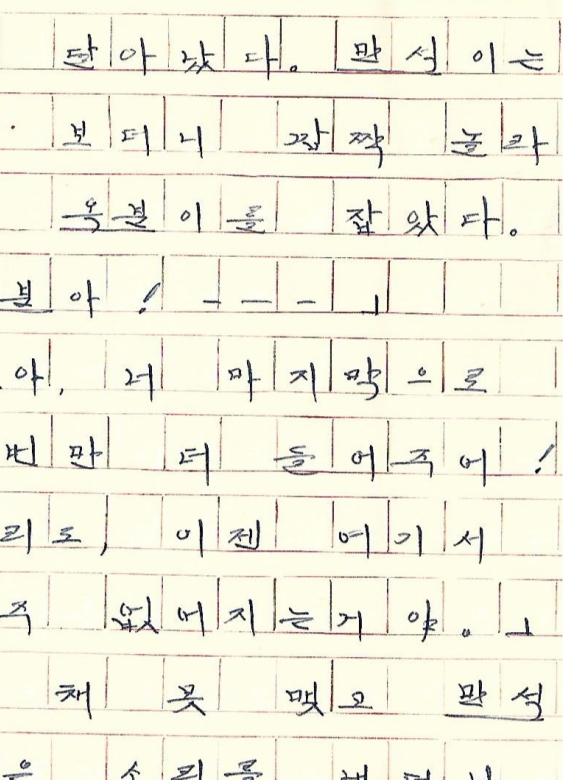 달아 났다. 만석이는
보더니 깜짝 놀라
옥분이를 잡았다.
분아! ---」
아, 너 마지막으로
번만 더 들어주어!
리도, 이젠 여기서
주 없어지는거야.」
채 못 맺고 만석
은 소리를